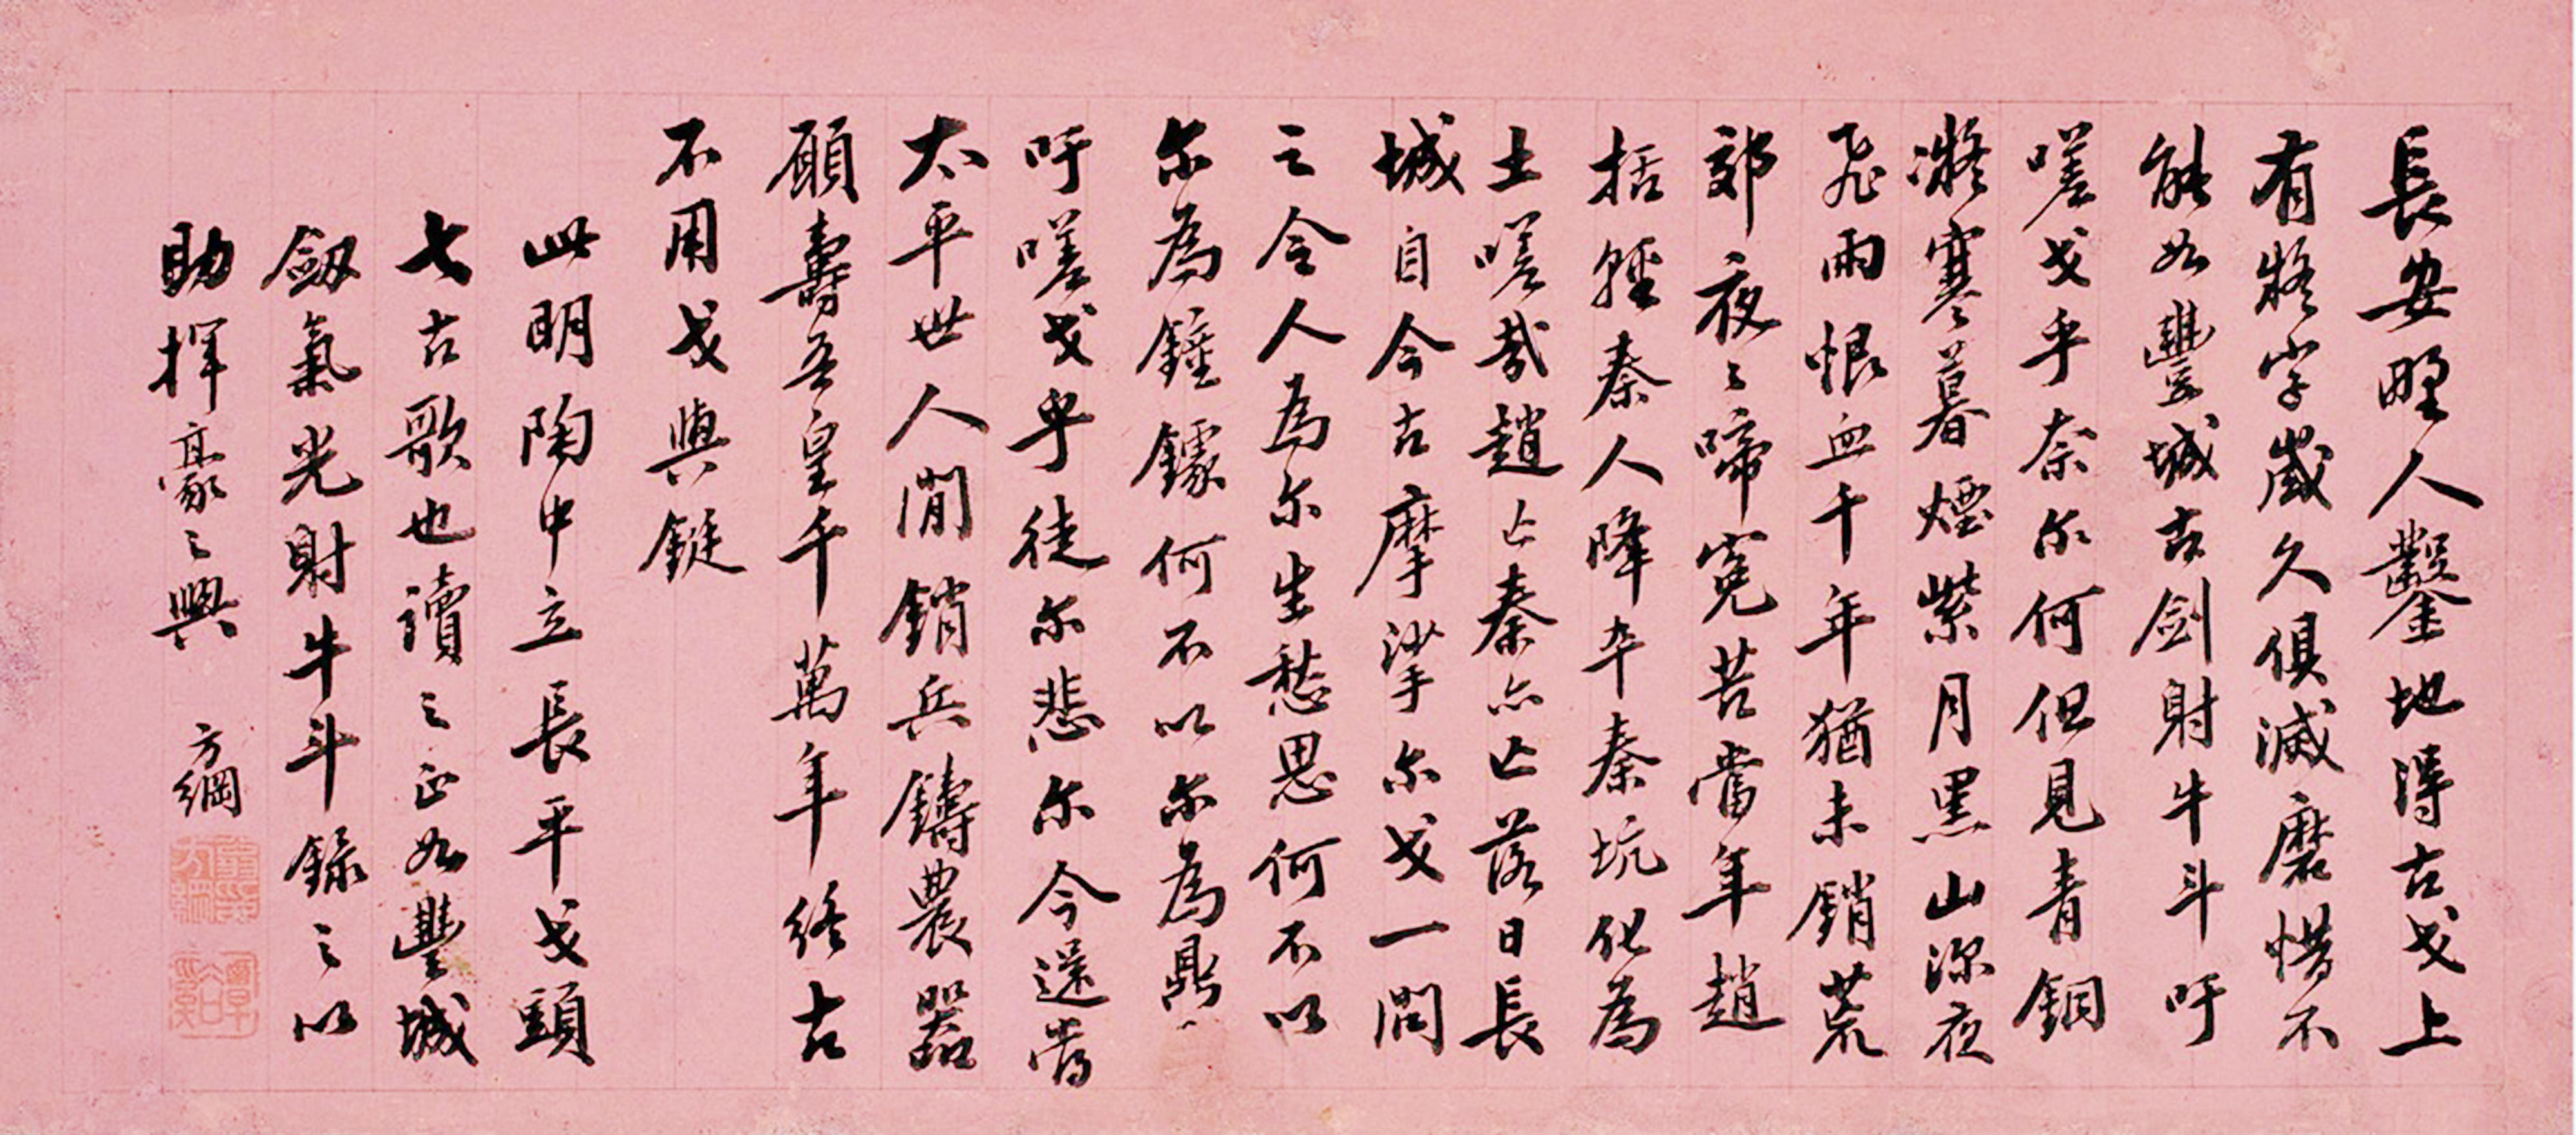 長安野人鑿地得古戈上
有將字歲久俱滅磨惜不
能如豐城古劍射牛斗吁
嗟戈乎奈尔何但見青銅
凝寒暮煙紫月黑山深夜
飛雨恨血千年猶未銷荒
郊夜〻啼冤苦當年趙
括輕秦人降卒秦坑化為
土嗟哉趙亡秦亦亡落日長
城自今古摩挲尔戈一問
之令人為尔生愁思何不以
尔為鐘鐻何不以尔為鼎
吁嗟戈乎徒尔悲尔今還當
太平世人間銷兵鑄農器
願壽吾皇千萬年終古
不用戈與鋋
此明陶中立長平戈頭
七古歌也讀之正如豐城
劔氣光射牛斗錄之以
助揮豪之興 方綱